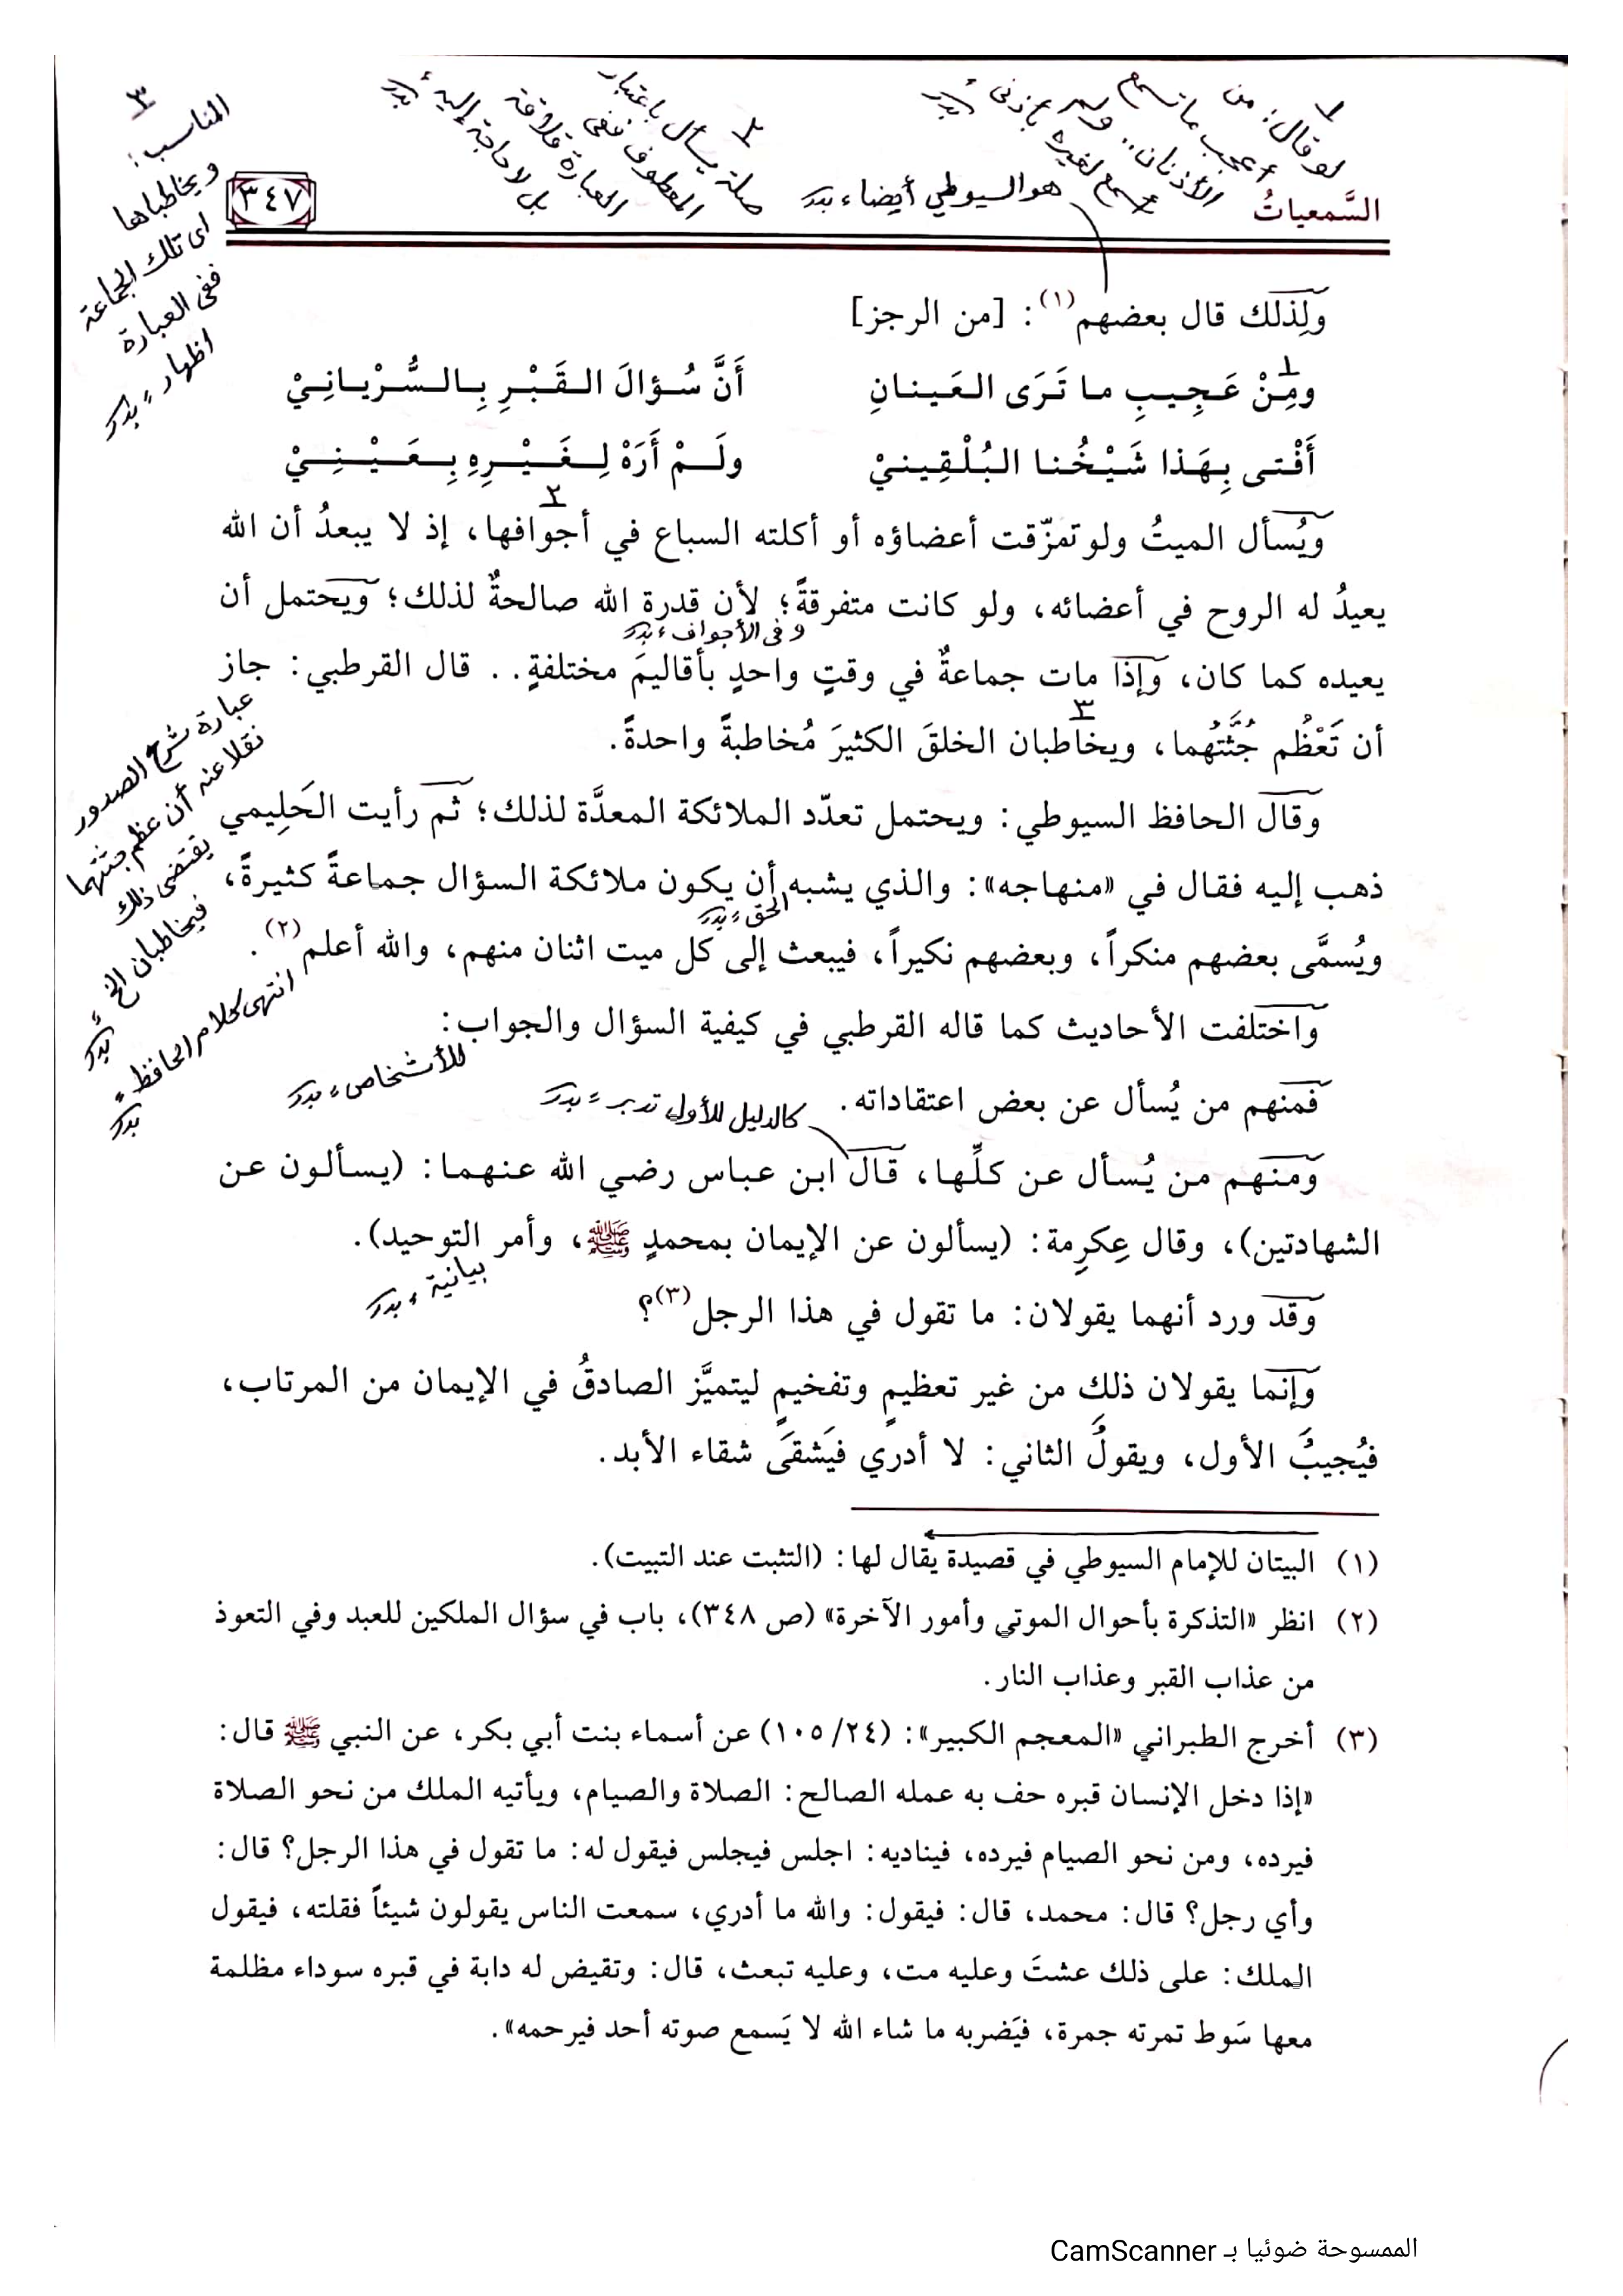 ١
لو قال: من
أعجب ما تسمع
الأذنان.. ولم
أسمع لغيره بأذنى ء بدر
هو السيوطي أيضا ء بدر
٢
صلة يسأل باعتبار
المعطوف ففى
العبارة قلاقة
بل لا حاجة إليه ء بدر
٣
المناسب:
ويخاطباها
اى تلك الجماعة
ففى العبارة
اظهار ء بدر
السَّمعياتُ
٣٤٧
ولِذلك قال بعضهم(١): [من الرجز]
١
ومِنْ عَجِيبِ ما تَرَى العَينانِ أَنَّ سُؤالَ القَبْرِ بِالسُّرْيانِيْ
أَفْتى بِهَذا شَيْخُنا البُلْقِينيْ ولَمْ أَرَهْ لِغَيْرِهِ بِعَيْنِيْ
٢
ويُسأل الميتُ ولو تمزّقت أعضاؤه أو أكلته السباع في أجوافها، إذ لا يبعدُ أن الله
يعيدُ له الروح في أعضائه، ولو كانت متفرقةً؛ لأن قدرة الله صالحةٌ لذلك؛ ويَحتمل أن
و فى الأجواف ء بدر
يعيده كما كان، وإذا مات جماعةٌ في وقتٍ واحدٍ بأقاليمَ مختلفةٍ.. قال القرطبي: جاز
٣
أن تَعْظُم جُثَّتُهما، ويخاطبان الخلقَ الكثيرَ مُخاطبةً واحدةً.
عبارة شرح الصدور
نقلا عنه أن عظم جثتهما
يقتضى ذلك
فيخاطبان الخ ء بدر
وقال الحافظ السيوطي: ويحتمل تعدّد الملائكة المعدَّة لذلك؛ ثم رأيت الحَلِيمي
ذهب إليه فقال في «منهاجه»: والذي يشبه أن يكون ملائكة السؤال جماعةً كثيرةً،
الحق ء بدر
ويُسمَّى بعضهم منكراً، وبعضهم نكيراً، فيبعث إلى كل ميت اثنان منهم، والله أعلم(٢).
انتهى كلام الحافظ ء بدر
واختلفت الأحاديث كما قاله القرطبي في كيفية السؤال والجواب:
للأشخاص ء بدر
فمنهم من يُسأل عن بعض اعتقاداته.
كالدليل للأول تدبر ء بدر
ومنهم من يُسأل عن كلِّها، قال ابن عباس رضي الله عنهما: (يسألون عن
الشهادتين)، وقال عِكرِمة: (يسألون عن الإيمان بمحمدٍ ﷺ، وأمر التوحيد).
بيانية ء بدر
وقد ورد أنهما يقولان: ما تقول في هذا الرجل(٣)؟
وإنما يقولان ذلك من غير تعظيمٍ وتفخيمٍ ليتميَّز الصادقُ في الإيمان من المرتاب،
فيُجيبُ الأول، ويقولُ الثاني: لا أدري فيَشقَى شقاء الأبد.
(١) البيتان للإمام السيوطي في قصيدة يقال لها: (التثبت عند التبيت).
(٢) انظر «التذكرة بأحوال الموتى وأمور الآخرة» (ص ٣٤٨)، باب في سؤال الملكين للعبد وفي التعوذ
من عذاب القبر وعذاب النار.
(٣) أخرج الطبراني «المعجم الكبير»: (٢٤/ ١٠٥) عن أسماء بنت أبي بكر، عن النبي ﷺ قال:
«إذا دخل الإنسان قبره حف به عمله الصالح: الصلاة والصيام، ويأتيه الملك من نحو الصلاة
فيرده، ومن نحو الصيام فيرده، فيناديه: اجلس فيجلس فيقول له: ما تقول في هذا الرجل؟ قال:
وأي رجل؟ قال: محمد، قال: فيقول: والله ما أدري، سمعت الناس يقولون شيئاً فقلته، فيقول
الملك: على ذلك عشتَ وعليه مت، وعليه تبعث، قال: وتقيض له دابة في قبره سوداء مظلمة
معها سَوط تمرته جمرة، فيَضربه ما شاء الله لا يَسمع صوته أحد فيرحمه».
الممسوحة ضوئيا بـ CamScanner